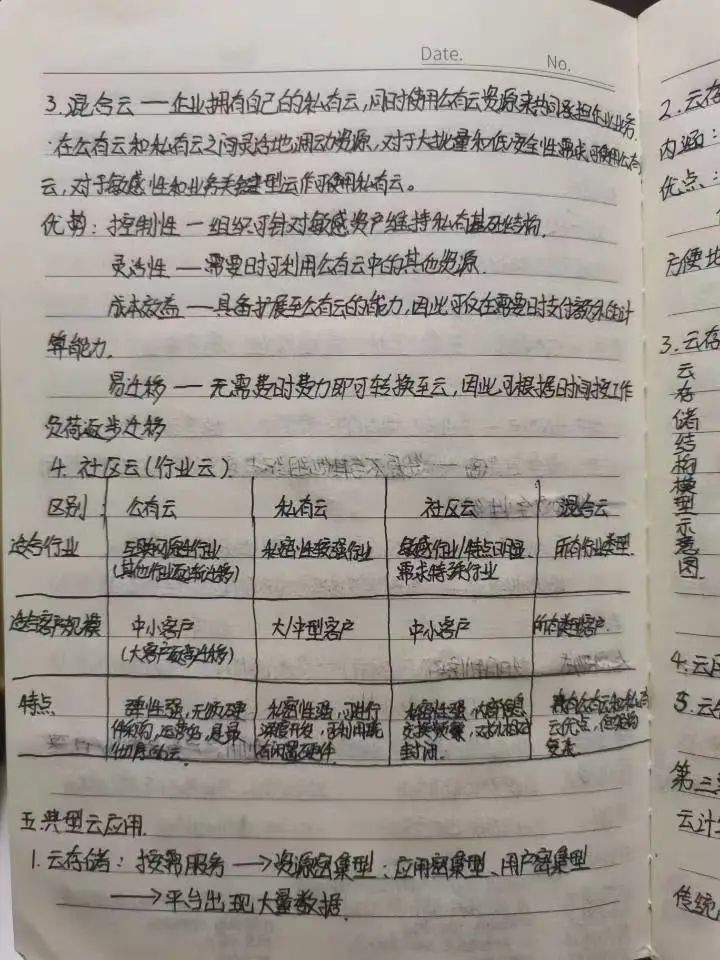 Date.
No.
3. 混合云 — 企业拥有自己的私有云,同时使用公有云资源来共同承担企业业务.
在公有云和私有云之间灵活地调动资源,对于大批量和低安全性需求可使用公有
云,对于敏感性和业务关键型运作可使用私有云。
优势: 控制性 — 组织可针对敏感资产维持私有基础结构.
灵活性 — 需要时可利用公有云中的其他资源.
成本效益 — 具备扩展至公有云的能力,因此可仅在需要时支付额外的计
算能力.
易迁移 — 无需费时费力即可转换至云,因此可根据时间按工作
负荷逐步迁移
4. 社区云(行业云).
区别: 公有云 私有云 社区云 混合云
适合行业 互联网原生行业 私密性较强行业 敏感行业/特点明显 所有行业类型.
(其他行业逐渐迁移) 需求特殊行业
适合客户规模 中小客户 大/中型客户 中小客户 所有类型客户.
(大客户逐渐迁移)
特点 弹性强,无须 私密性强,可进行 私密性强,内部信息 拥有公有云和私有
深度开发,可利用现 交换频繁,对外相对 云优点,但架构
有闲置硬件 封闭. 复杂.
五.典型云应用.
1. 云存储: 按需服务 → 资源密集型: 应用密集型、用户密集型
→ 平台出现大量数据.
2. 云存
内涵:
优点:
方便地
3. 云存
云存储结构模型示意图.
4. 云
5. 云
第三
云计
传统